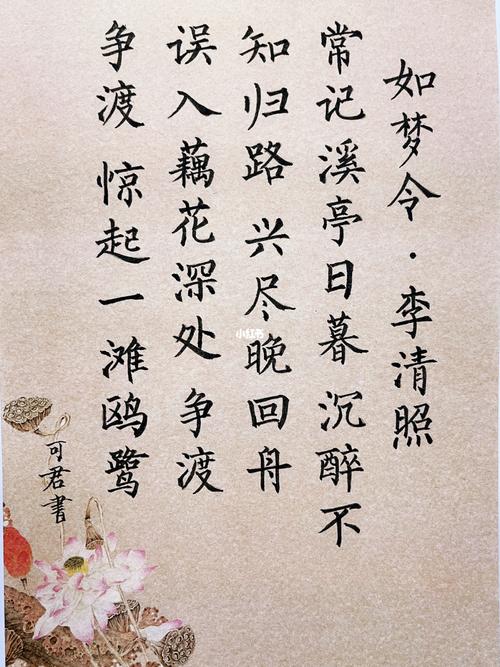 如梦令·李清照
常记溪亭日暮 沉醉不
知归路 兴尽晚回舟
误入藕花深处 争渡
争渡 惊起一滩鸥鹭
可君書
小红书